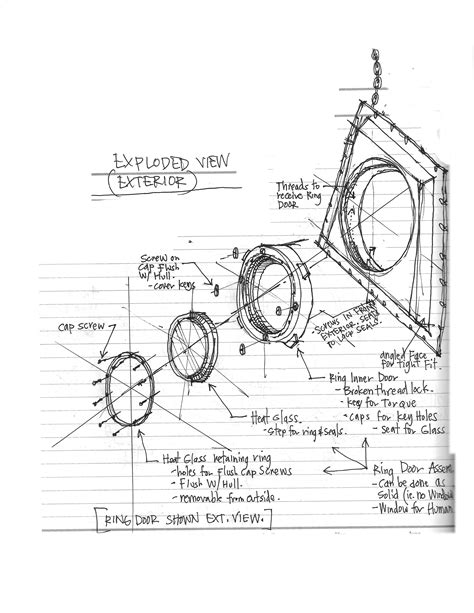 EXPLODED VIEW
(EXTERIOR)
Threads to
receive Ring
DOOR
Screw on
Cap Flush
W/Hull.
- cover keys
cap screw
SCREWS IN FRONT
EXTERIOR SEAT
TO LOCK SEALS.
angled Face
for tight Fit.
Ring Inner Door
- Broken thread lock.
- key for Torque
- caps for key Holes
- seat for Glass
Heat Glass.
- step for ring & seals.
Heat Glass retaining ring
- holes for Flush Cap Screws
- Flush W/Hull.
- removable from outside.
Ring Door Assem
- Can be done as
Solid (i.e. no Window
- Window for Human
[RING DOOR SHOWN EXT. VIEW.]